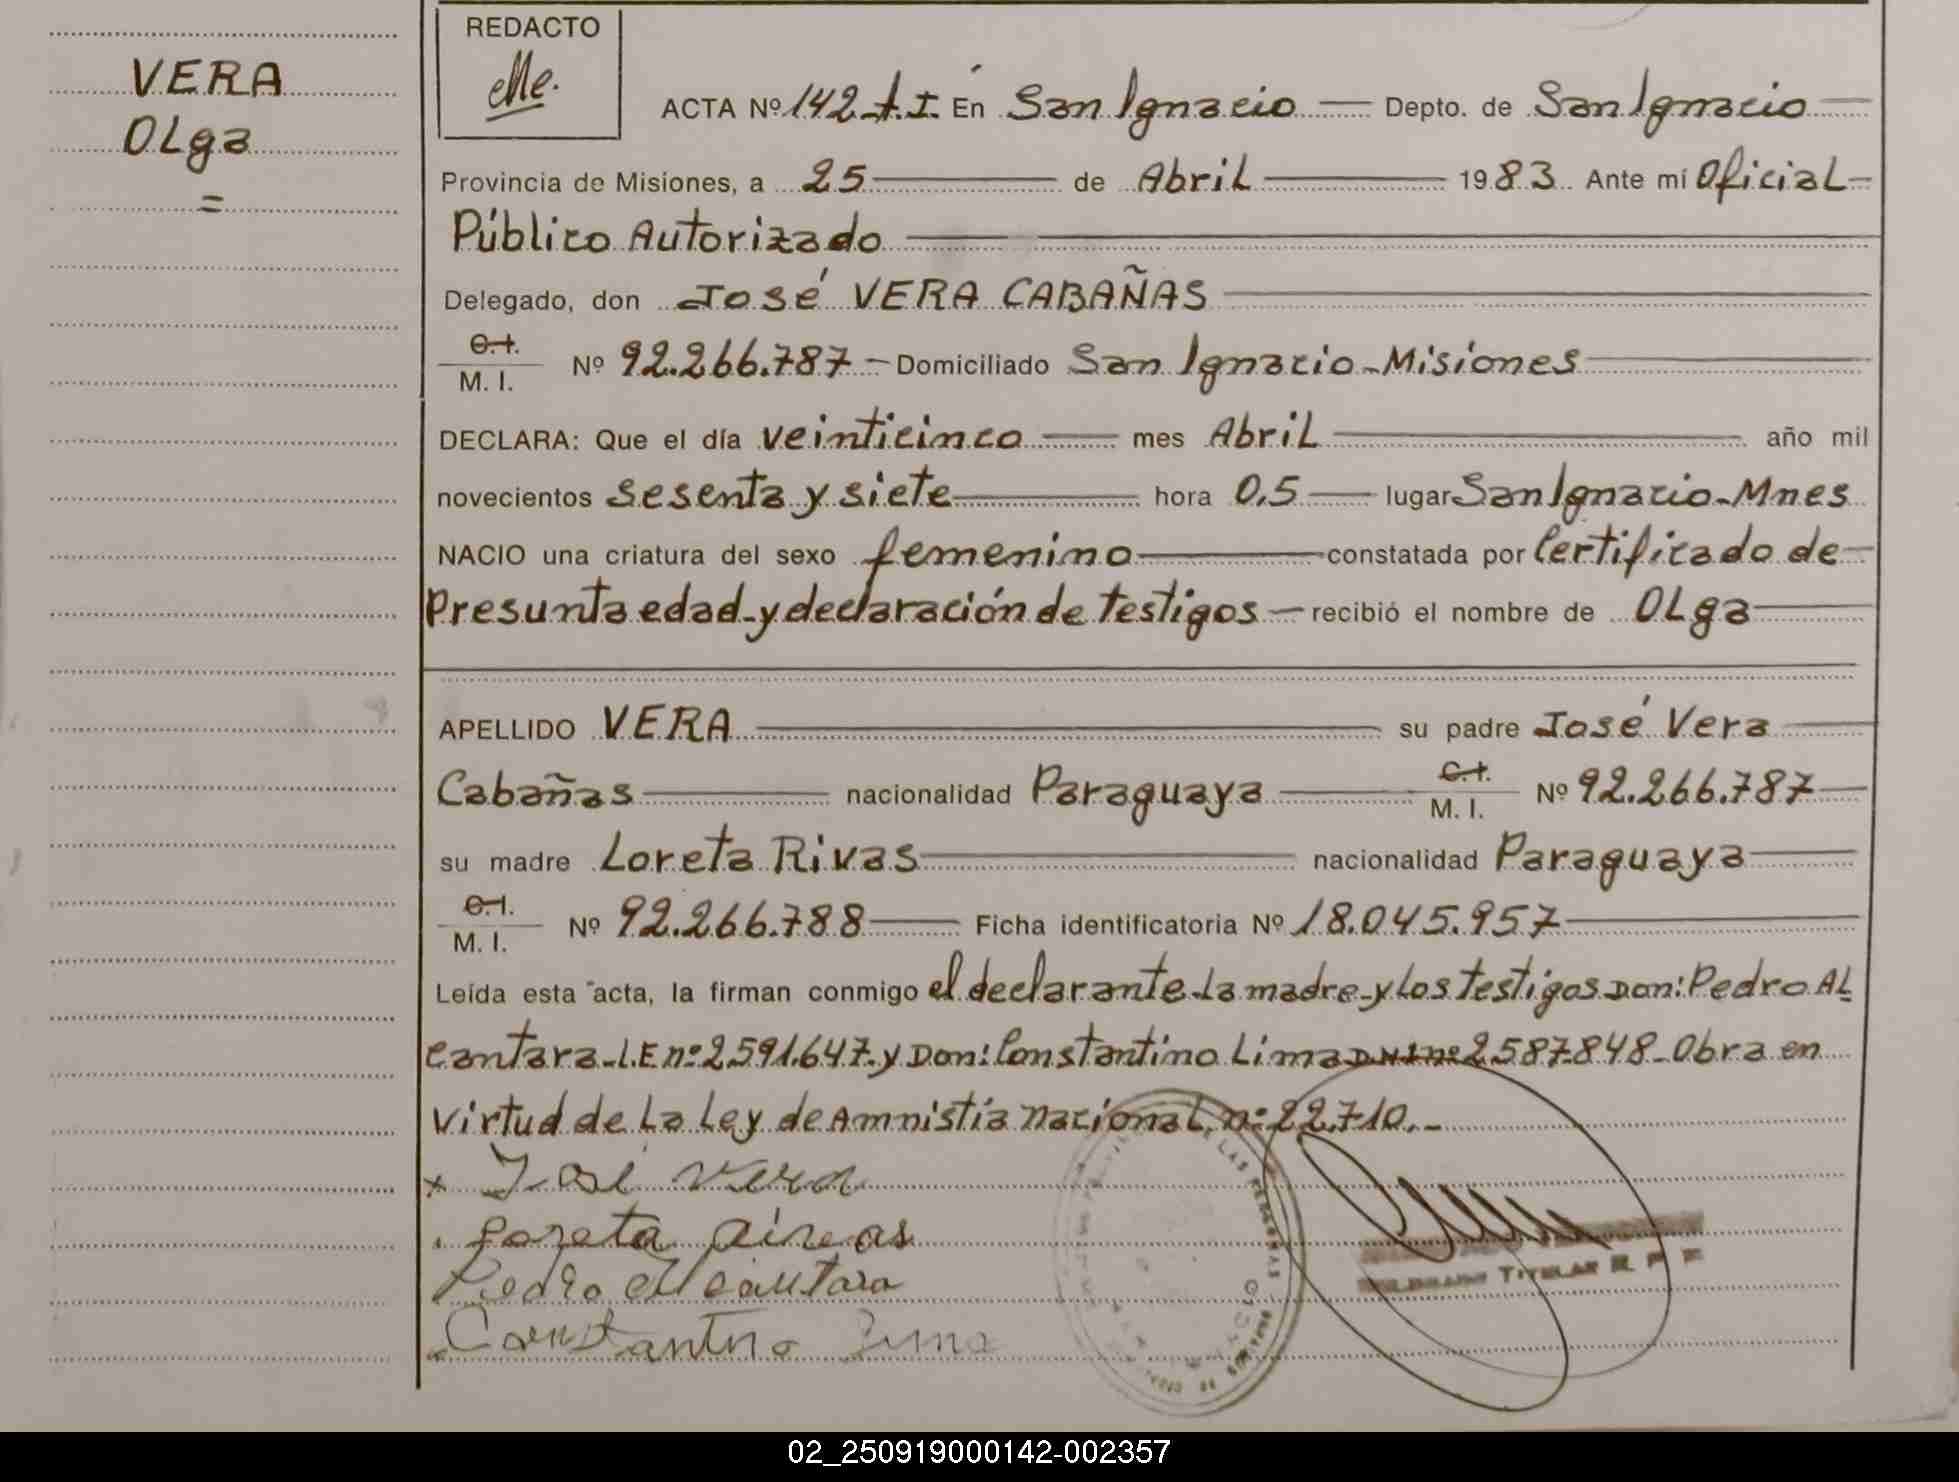 VERA
OLga
=
REDACTO
ACTA Nº 142 t.I. En San Ignacio Depto. de San Ignacio
Provincia de Misiones, a 25 de Abril 1983 Ante mí Oficial
Público Autorizado
Delegado, don José VERA CABAÑAS
C.I.
M. I. Nº 92.266.787 Domiciliado San Ignacio - Misiones
DECLARA: Que el día veinticinco mes Abril año mil
novecientos sesenta y siete hora 0,5 lugar San Ignacio - Mnes
NACIO una criatura del sexo femenino constatada por Certificado de
Presunta edad - y declaración de testigos recibió el nombre de OLga
APELLIDO VERA su padre José Vera
Cabañas nacionalidad Paraguaya C.I. M. I. Nº 92.266.787
su madre Loreta Rivas nacionalidad Paraguaya
C.I.
M. I. Nº 92.266.788 Ficha identificatoria Nº 18.045.957
Leída esta acta, la firman conmigo el declarante - La madre - y Los testigos Don: Pedro AL
cantara - L.E nº 2.591.647. y Don: Constantino Lima DNI nº 2.587.848 - Obra en
virtud de La Ley de Amnistía nacional nº 22.710. -
x José vera
Loreta
Pedro Alcantara
Constantino Lima
TITULAR R. P. P.
02_250919000142-002357